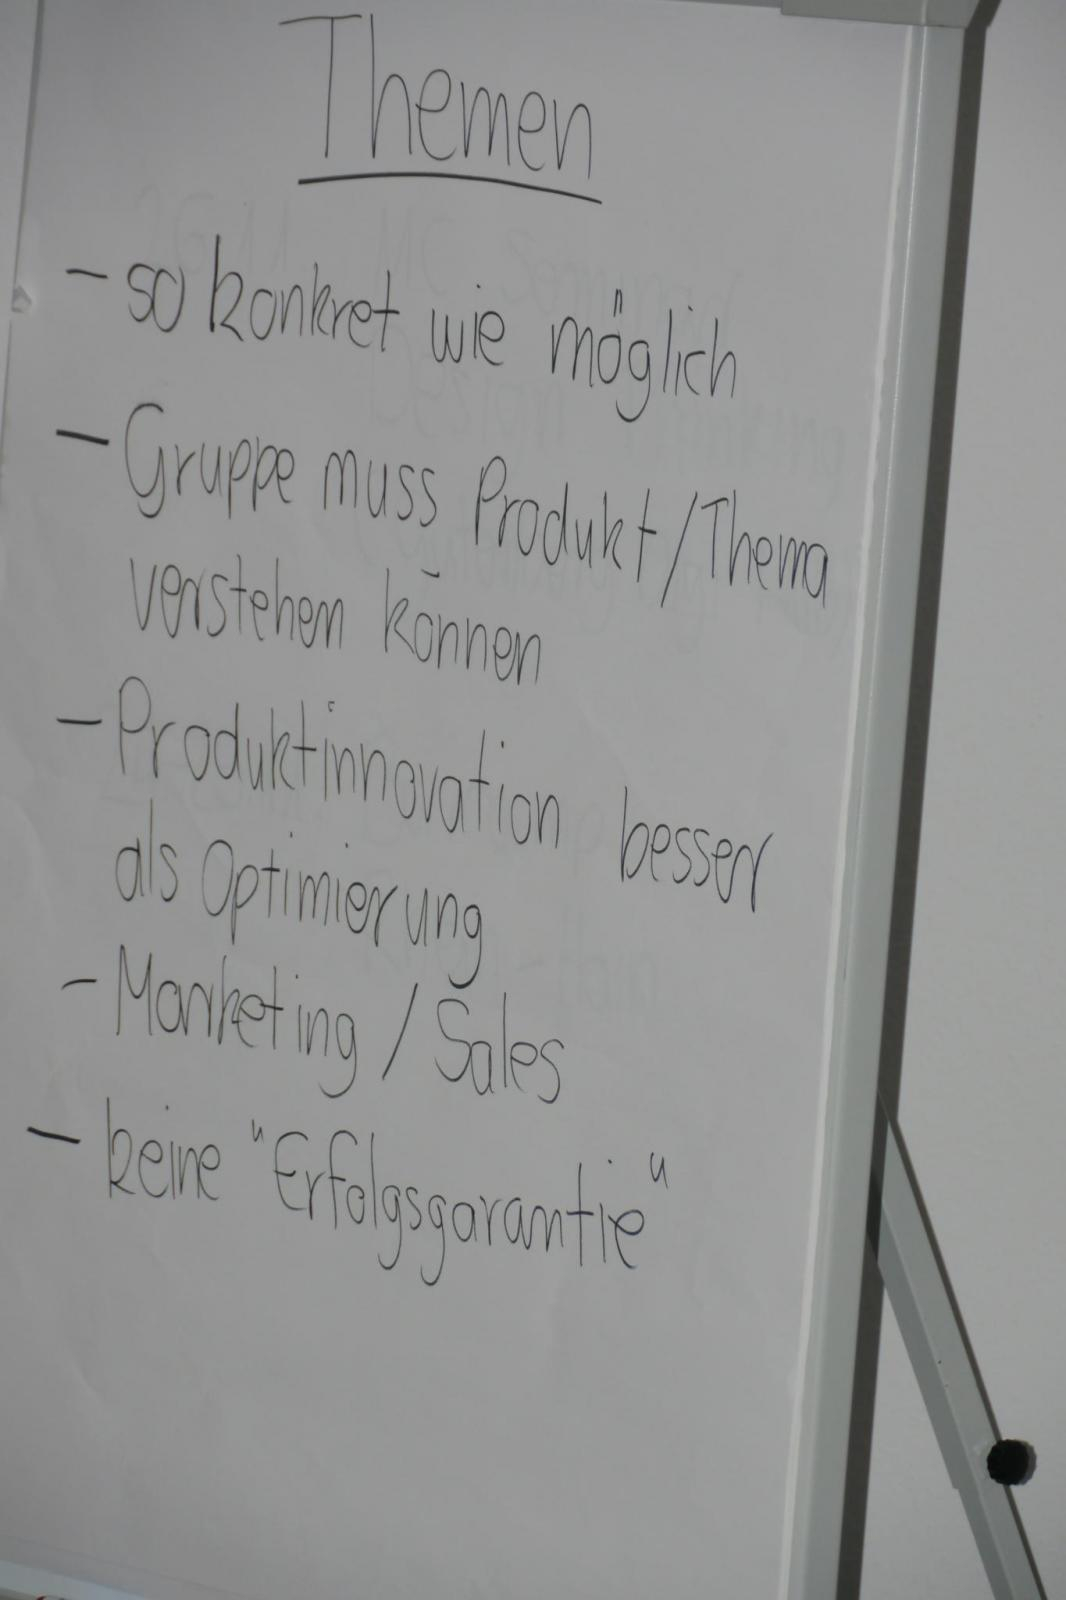 Themen
- so konkret wie möglich
- Gruppe muss Produkt/Thema
verstehen können
- Produktinnovation besser
als Optimierung
- Marketing / Sales
- keine "Erfolgsgarantie"